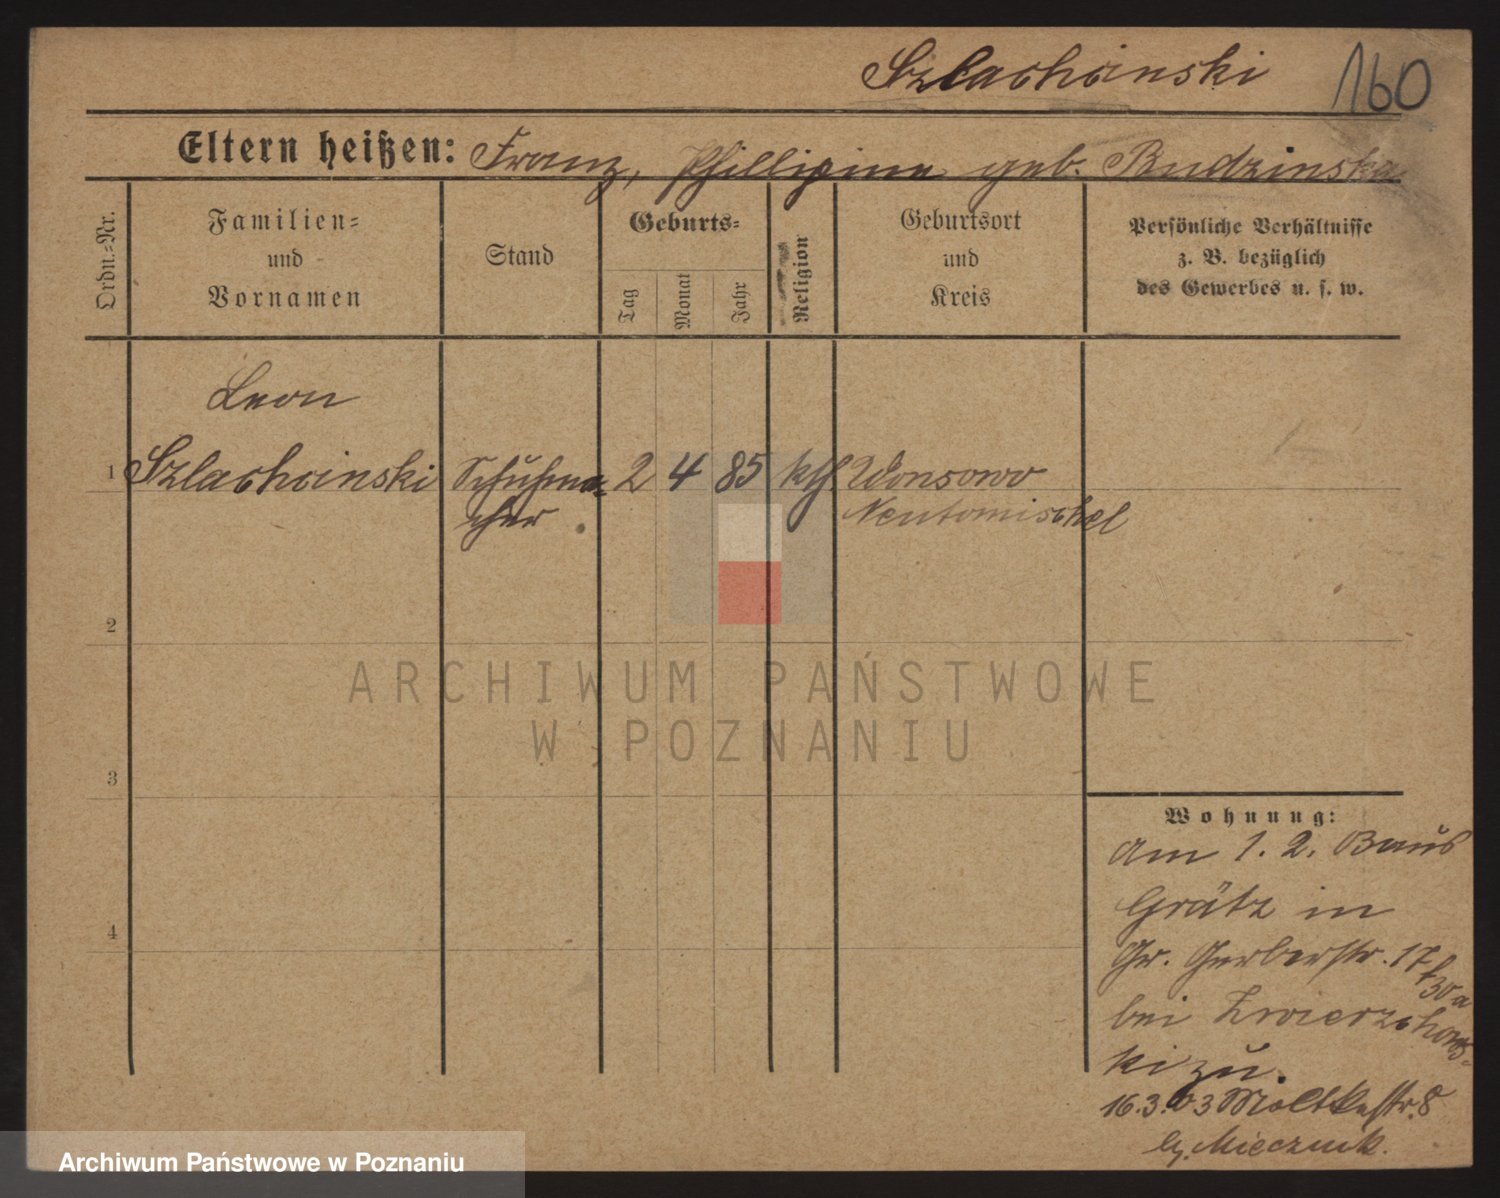 Szlachcinski 160
Eltern heißen: Franz, Phillipine geb. Budzinska
Ordn.=Nr.
Familien=
und
Vornamen
Stand
Geburts=
Tag
Monat
Jahr
Religion
Geburtsort
und
Kreis
Persönliche Verhältnisse
z. B. bezüglich
des Gewerbes u. s. w.
Leon
1 Szlachcinski Schuhma= 2 4 85 kth. Wonsowo
cher Neutomischel
2
3
4
ARCHIWUM PAŃSTWOWE
W POZNANIU
Wohnung:
Am 1. 2.
Grätz in
Gr. Gerberstr. 17
bei Zwierzchows=
ki zu.
16.3.03 Moltkestr. 8
Archiwum Państwowe w Poznaniu